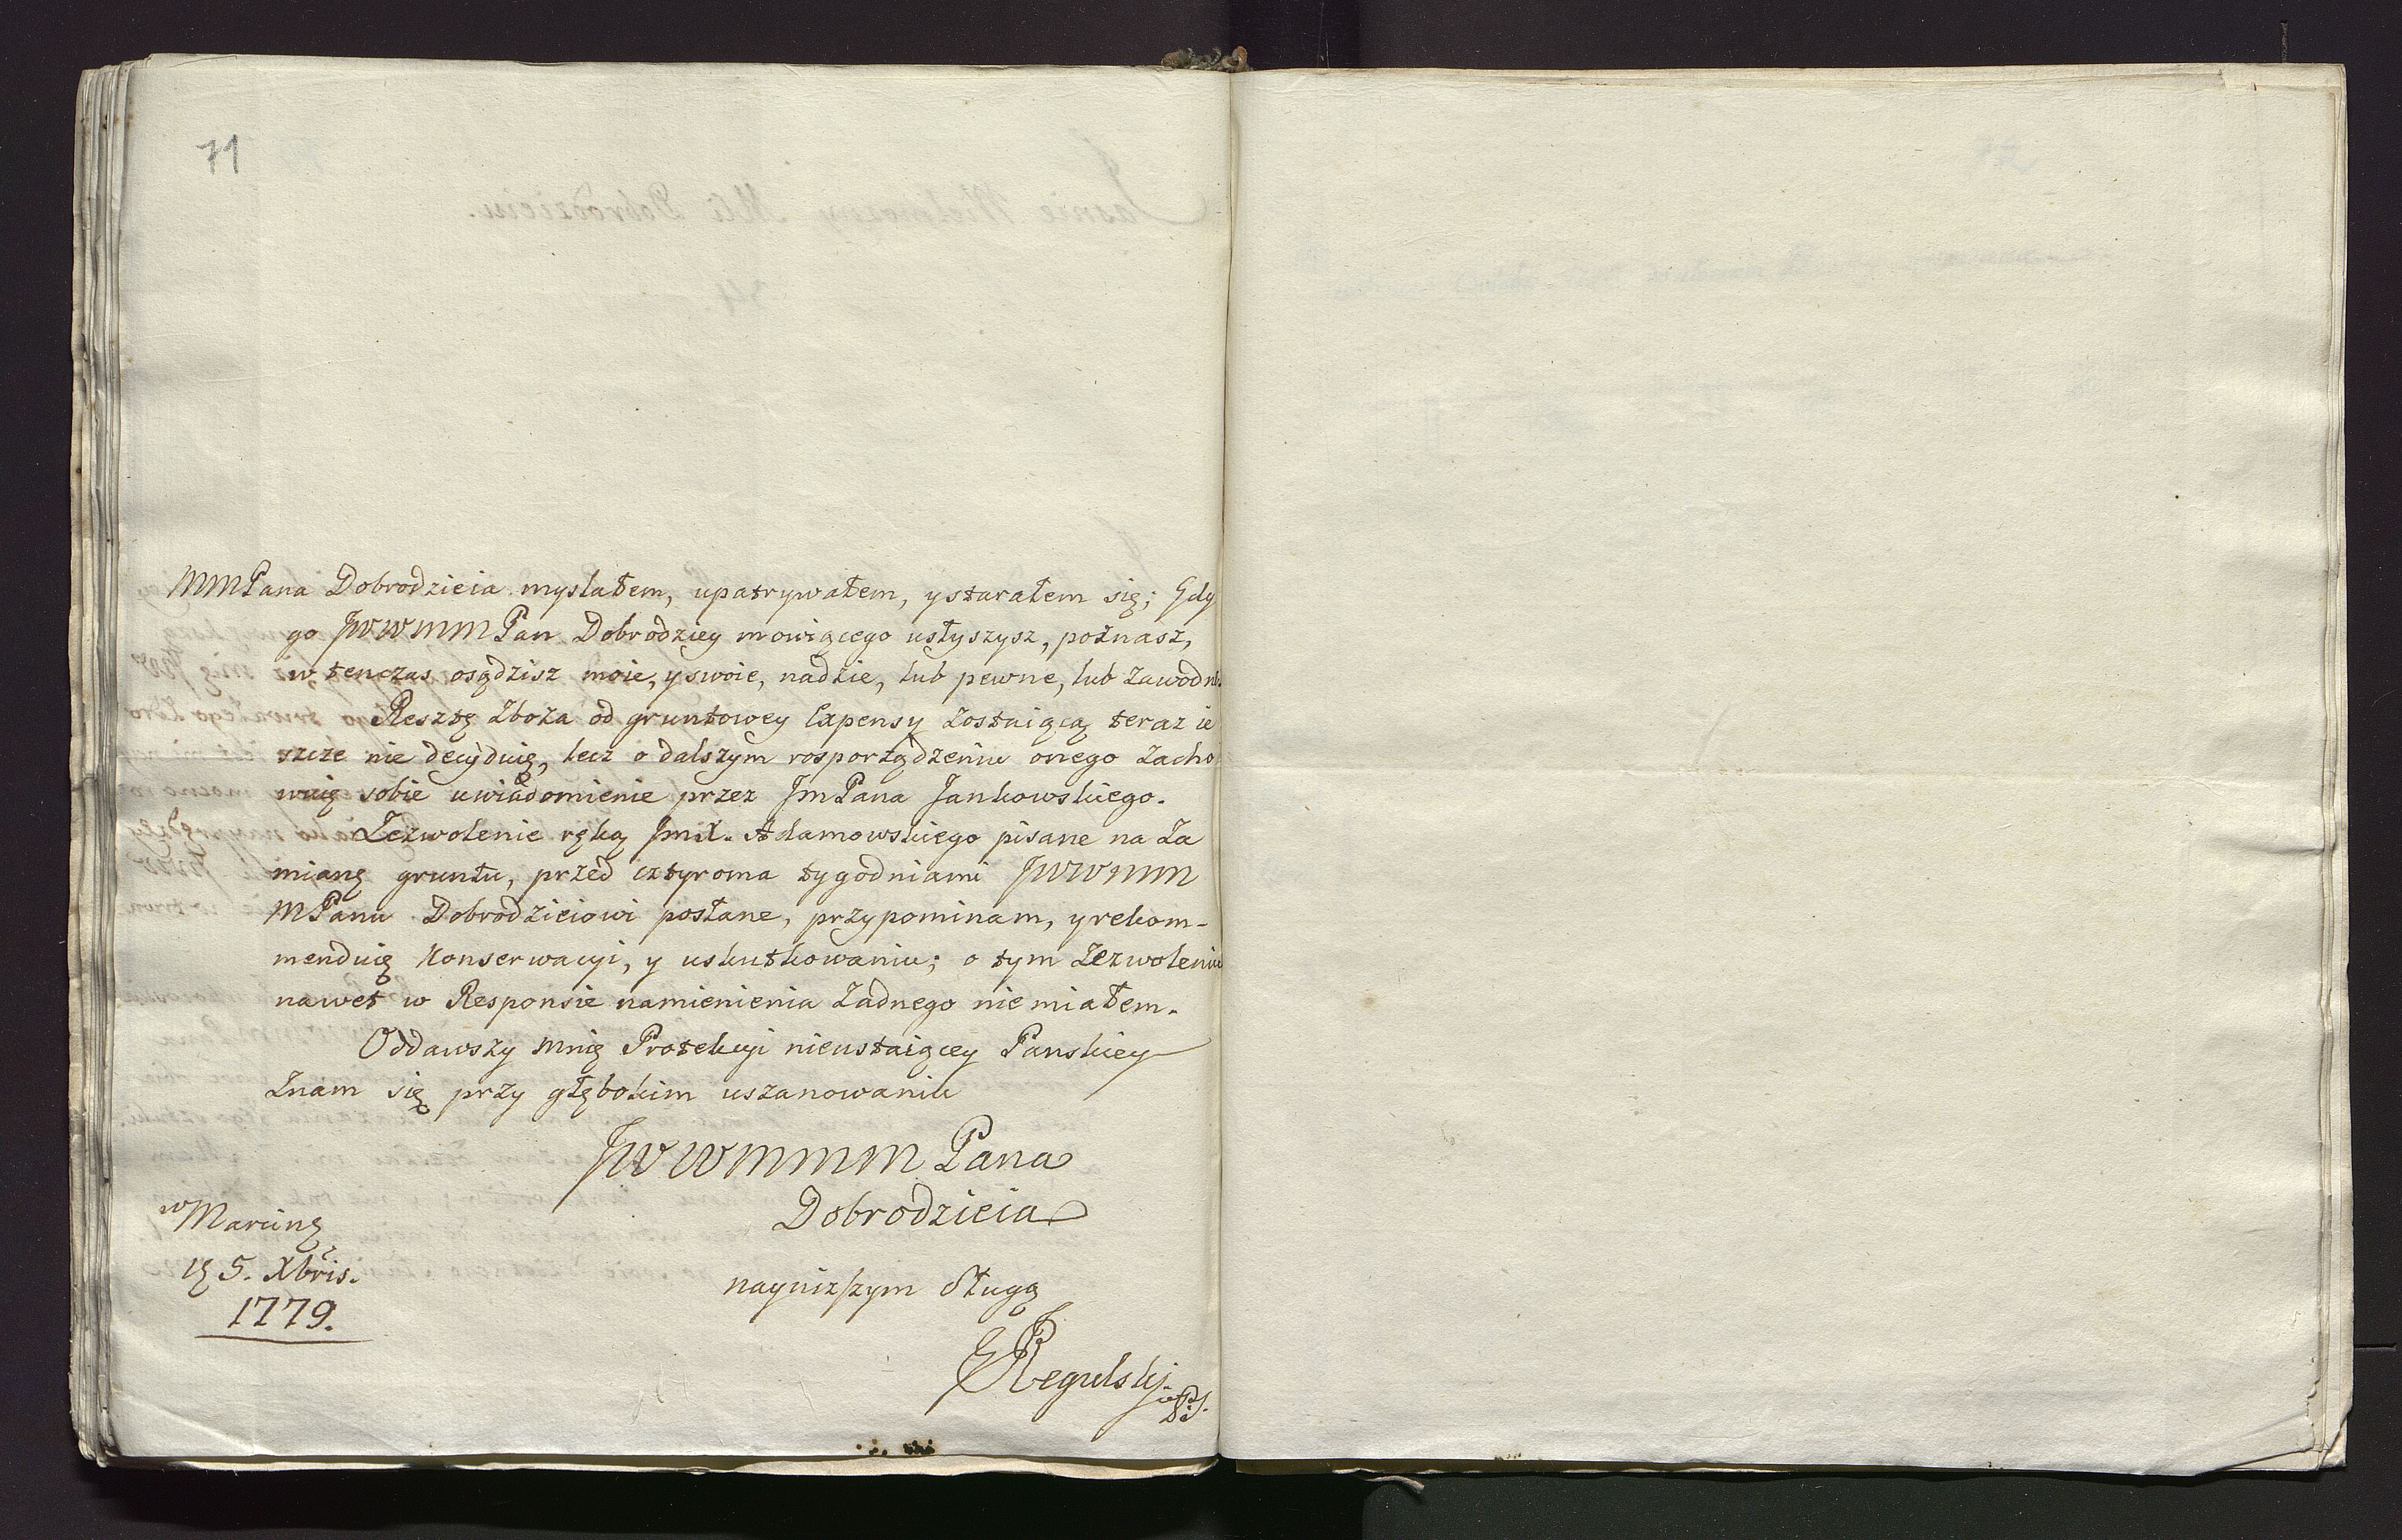 71
MMPana Dobrodzieia myslałem, upatrywałem, y starałem się; Gdy
go JWWMM Pan Dobrodziey mowiącego usłyszysz, poznasz,
w tenczas osądzisz moie, y swoie, nadzie, lub pewne, lub zawodne
Resztę Zboża od gruntowey Expensy zostaiącą teraz ie
szcze nie decyduię, lecz o dalszym rosporządzeniu onego zacho
wuię sobie uwiadomienie przez JmPana Jankowskiego.
Zezwolenie ręką JmX. Adamowskiego pisane na za
mianę gruntu, przed cztyroma tygodniami JWWMM
MPanu Dobrodzieiowi posłane, przypominam, y rekom-
menduię Konserwacyi, y uskutkowaniu; o tym Zezwoleniu
nawet w Responsie namienienia żadnego nie miałem.
Oddawszy mnię Protekcyi nieustaiącey Panskiey
znam się przy głębokim uszanowaniu
JWWMMM Pana
Dobrodzieia
nayniższym sługą
Regulskj
w Marcinę
5. Xbris.
1779.